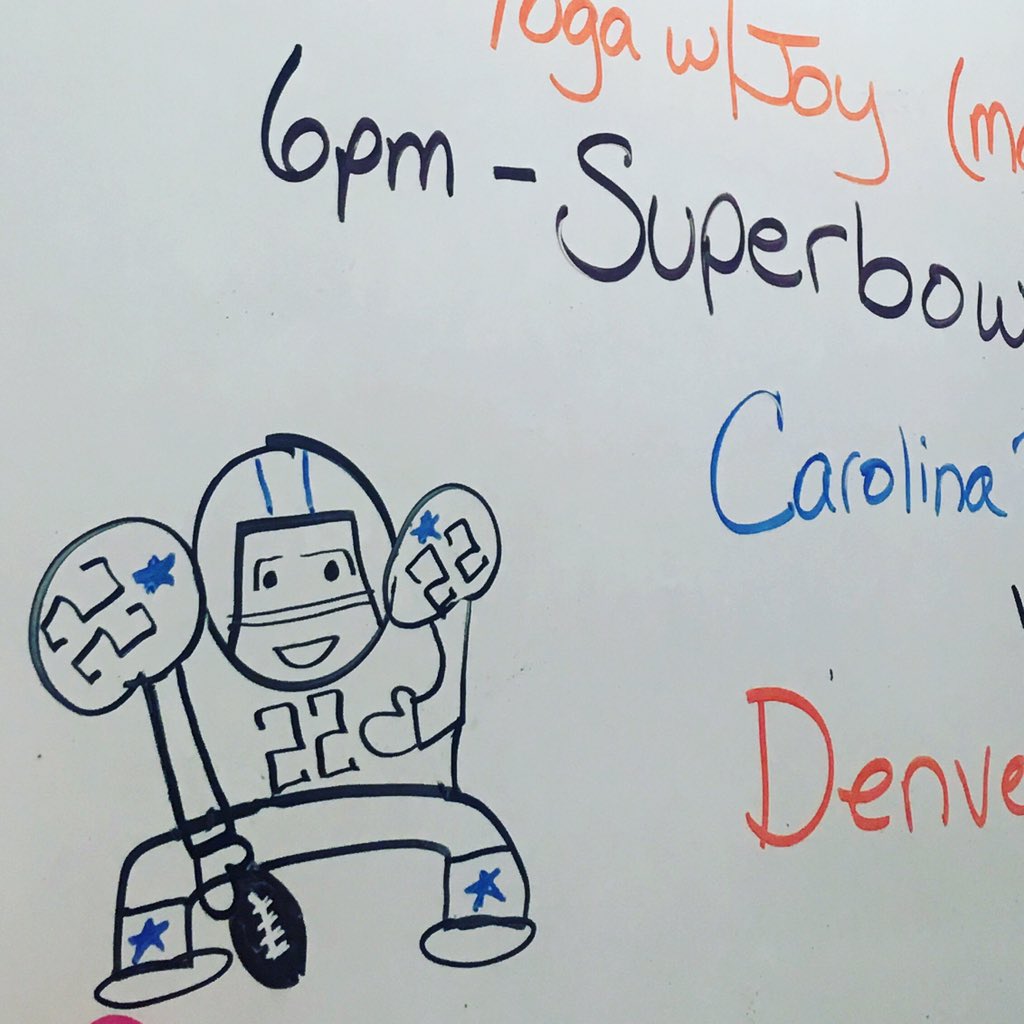 Yoga w/ Joy (m
6pm - Superbow
Carolina
Denve
22
22
22